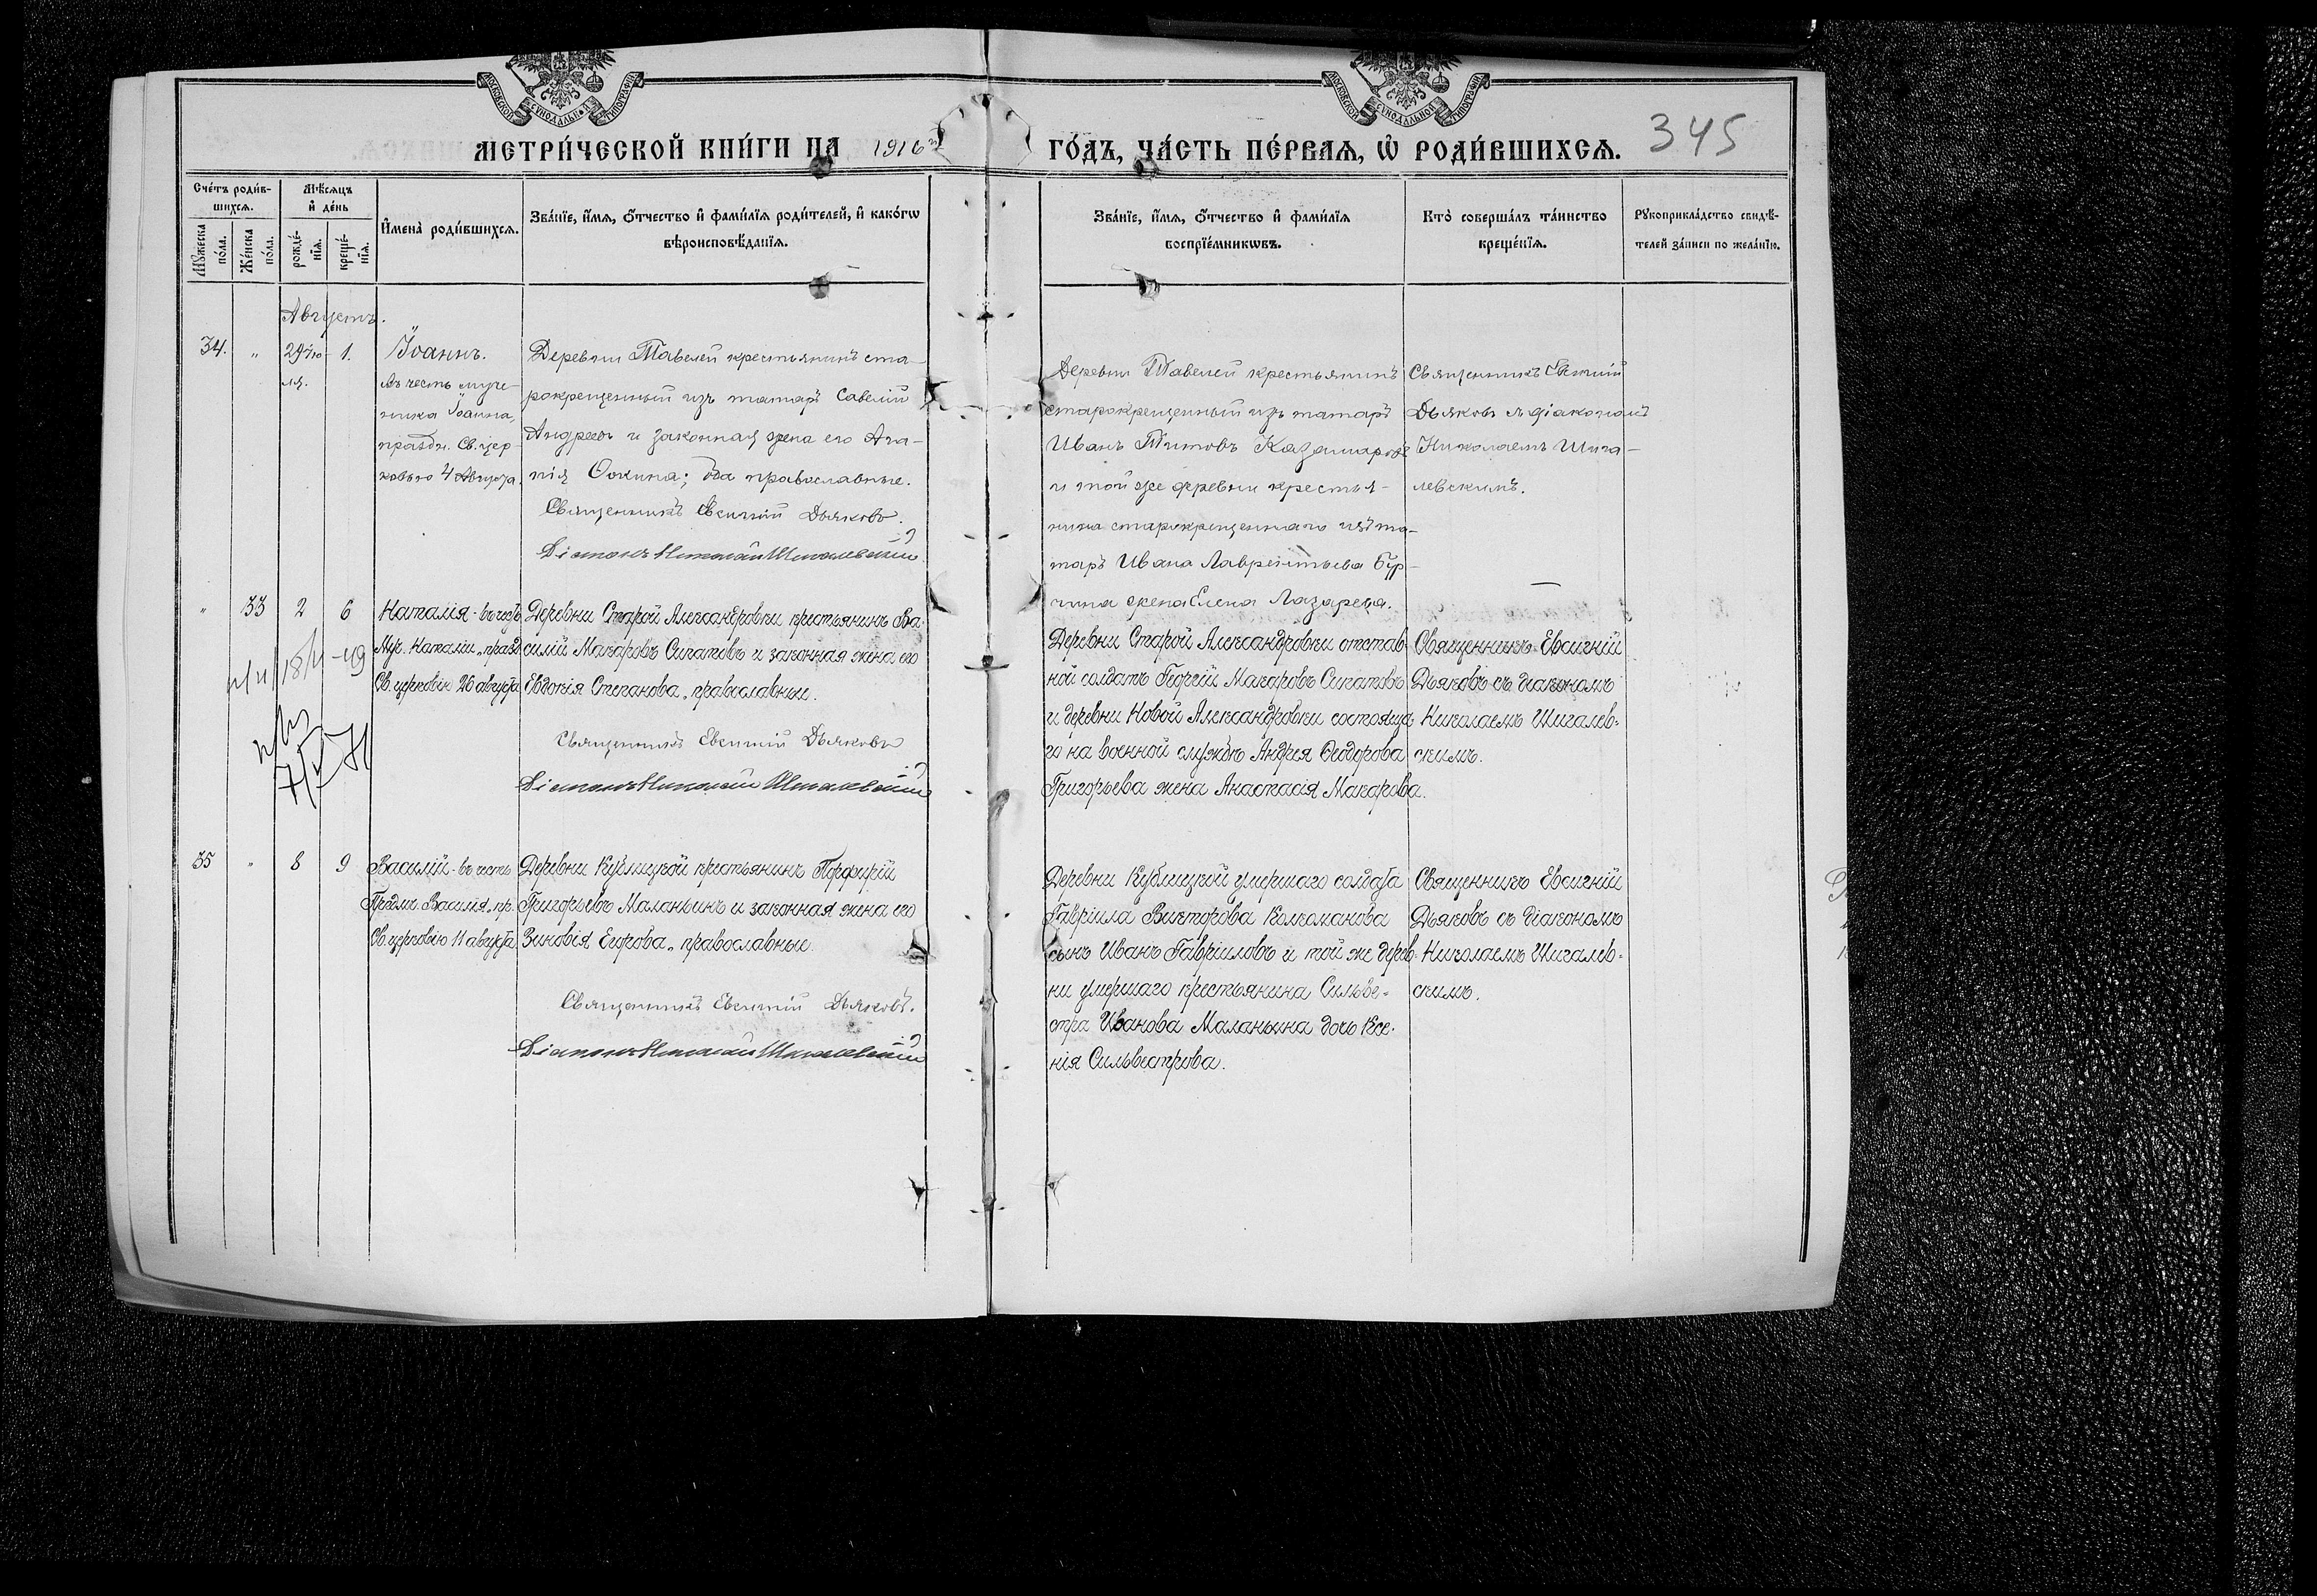 МОСКОВСКОЙ СУНОДАЛЬНОЙ ТИПОГРАФІИ
МОСКОВСКОЙ СУНОДАЛЬНОЙ ТИПОГРАФІИ
МЕТРИ́ЧЕСКОЙ КНИ́ГИ НА 1916 ГО́ДЪ, ЧА́СТЬ ПЕ́РВАЯ, Ѡ РОДИ́ВШИХСЯ.
345
Сче́тъ роди́в-
шихся.
Мꙋжеска
по́ла.
Же́нска
по́ла.
Мѣ́сяцъ
и҆ де́нь
рожде́-
нїя.
креще́-
нїя.
И҆мена̀ роди́вшихся.
Зва́нїе, и҆́мя, ѻ҆́тчество и҆ фами́лїя роди́телей, и҆ како́гѡ
вѣроисповѣ́данїя.
Зва́нїе, и҆́мя, ѻ҆́тчество и҆ фами́лїя
воспрїе́мникѡвъ.
Кто̀ соверша́лъ та́инство
креще́нїя.
Рꙋкоприкла́дство свидѣ́-
телей за́писи по жела́нїю.
Августъ.
34.
"
29 ію-
ля.
1.
Іоаннъ.
въ честь муче-
ника Іоанна,
праздн. Св. цер-
ковью 4 Августа.
Деревни Тавелей крестьянинъ ста-
рокрещенный изъ татаръ Савелій
Андреевъ и законная жена его Ага-
пія Ѳокина; оба православные.
Священникъ Евсигній Дьяковъ.
Діаконъ Николай Шигалевскій
Деревни Тавелей крестьянинъ
старокрещенный изъ татаръ
Иванъ Титовъ
и той же деревни крестья-
нина старокрещеннаго изъ та-
таръ Ивана Лаврентьева Бур-
жена Елена Лазарева.
Священникъ Евсигній
Дьяковъ съ діакономъ
Николаемъ Шига-
левскимъ.
"
33
2
6
Наталія - въ честь
Муч. Наталіи, празд
Св. церковію 26 августа
Деревни Старой Александровки крестьянинъ Ва-
силій Макаровъ Сипатовъ и законная жена его
Евдокія Степанова, православные.
Священникъ Евсигній Дьяковъ
Діаконъ Николай Шигалевскій
Деревни Старой Александровки отстав-
ной солдатъ Георгій Макаровъ Сипатовъ
и деревни Новой Александровки состояща-
го на военной службѣ Андрея Ѳеодорова
Григорьева жена Анастасія Макарова.
Священникъ Евсигній
Дьяковъ съ діакономъ
Николаемъ Шигалев-
скимъ.
35
"
8
9
Василій - въ честь
Василія, пр.
Св. церковію 11 августа
Деревни Кублицкой крестьянинъ Порфирій
Григорьевъ Маланьинъ и законная жена его
Зиновія Егорова, православные.
Священникъ Евсигній Дьяковъ.
Діаконъ Николай Шигалевскій
Деревни Кублицкой умершаго солдата
Гавріила Викторова
сынъ Иванъ Гавріиловъ и той же дерев-
ни умершаго крестьянина Сильве-
стра Иванова Маланьина дочь Ксе-
нія Сильвестрова.
Священникъ Евсигній
Дьяковъ съ діакономъ
Николаемъ Шигалев-
скимъ.